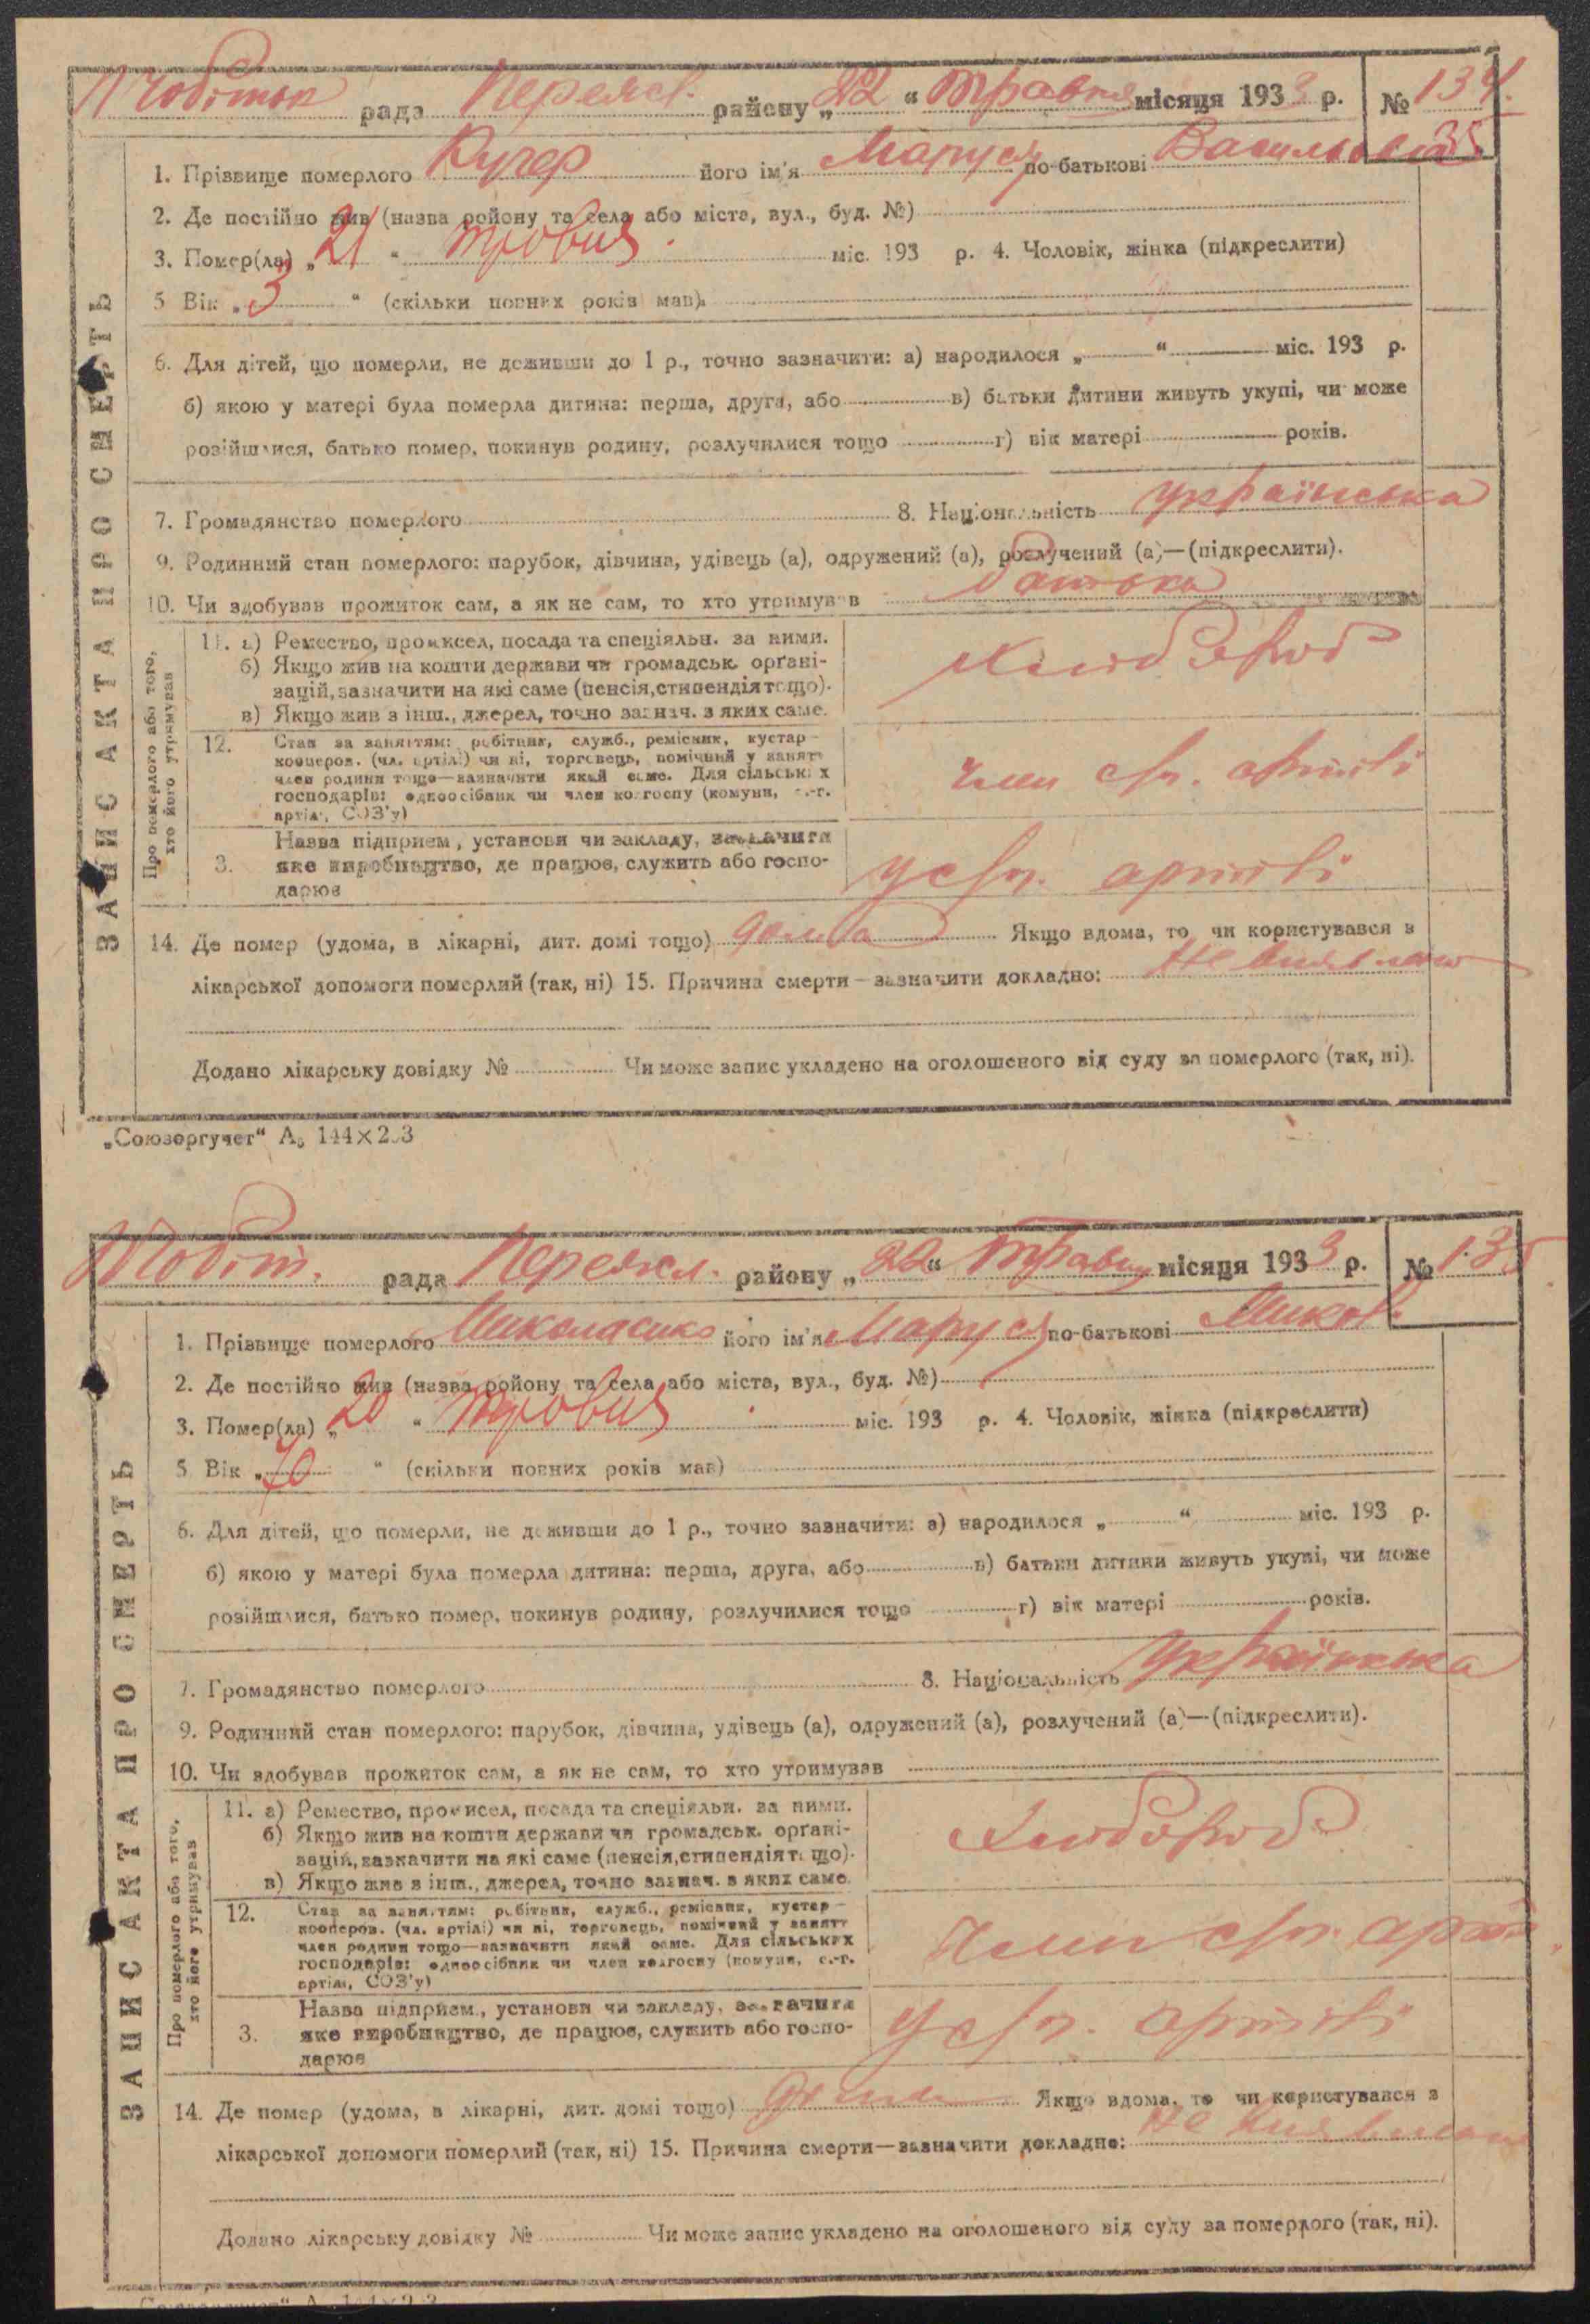 рада Переясл. району „22“ Травня місяця 1933 р. № 134
1. Прізвище померлого Кучер його ім'я Маруся по-батькові Васильовна 35
2. Де постійно жив (назва ройону та села або міста, вул., буд. №)
3. Помер(ла) „21“ травня міс. 193 р. 4. Чоловік, жінка (підкреслити)
5 Вік „3“ (скільки повних років мав)
6. Для дітей, що померли, не доживши до 1 р., точно зазначити: а) народилося „ “ міс. 193 р.
б) якою у матері була померла дитина: перша, друга, або в) батьки дитини живуть укупі, чи може
розійшлися, батько помер, покинув родину, розлучилися тощо г) вік матері років.
7. Громадянство померлого 8. Національність українська
9. Родинний стан померлого: парубок, дівчина, удівець (а), одружений (а), розлучений (а)—(підкреслити).
10. Чи здобував прожиток сам, а як не сам, то хто утримував батька
ЗАПИС АКТА ПРО СМЕРТЬ
Про померлого або того, хто його утримував
11. а) Ремество, промисел, посада та спеціяльн. за ними.
б) Якщо жив на кошти держави чи громадськ. органі-
зацій, зазначити на які саме (пенсія, стипендія тощо).
в) Якщо жив з інш., джерел, точно зазнач. з яких саме.
Хлібороб
12. Стан за заняттям: робітник, служб., ремісник, кустар—
кооперов. (чл. артілі) чи ні, торговець, помічний у занятт
член родини тощо—зазначити який саме. Для сільських
господарів: одноосібник чи член колгоспу (комуни, с.-г.
артілі, СОЗ'у)
член с/г. артілі
3. Назва підприєм., установи чи закладу, зазначити
яке виробництво, де працює, служить або госпо-
дарює
у с/г. артілі
14. Де помер (удома, в лікарні, дит. домі тощо) дома Якщо вдома, то чи користувався з
лікарської допомоги померлий (так, ні) 15. Причина смерти—зазначити докладно: Не виявлено
Додано лікарську довідку № Чи може запис укладено на оголошеного від суду за померлого (так, ні).
„Союзоргучет“ А₅ 144×203
рада Переясл. району „22“ Травня місяця 1933 р. № 135
1. Прізвище померлого Миколаєнко його ім'я Маруся по-батькові Микол
2. Де постійно жив (назва ройону та села або міста, вул., буд. №)
3. Помер(ла) „20“ травня міс. 193 р. 4. Чоловік, жінка (підкреслити)
5 Вік „70“ (скільки повних років мав)
6. Для дітей, що померли, не доживши до 1 р., точно зазначити: а) народилося „ “ міс. 193 р.
б) якою у матері була померла дитина: перша, друга, або в) батьки дитини живуть укупі, чи може
розійшлися, батько помер, покинув родину, розлучилися тощо г) вік матері років.
7. Громадянство померлого 8. Національність Українська
9. Родинний стан померлого: парубок, дівчина, удівець (а), одружений (а), розлучений (а)—(підкреслити).
10. Чи здобував прожиток сам, а як не сам, то хто утримував
ЗАПИС АКТА ПРО СМЕРТЬ
Про померлого або того, хто його утримував
11. а) Ремество, промисел, посада та спеціяльн. за ними.
б) Якщо жив на кошти держави чи громадськ. органі-
зацій, зазначити на які саме (пенсія, стипендія тощо).
в) Якщо жив з інш., джерел, точно зазнач. з яких саме.
Хлібороб
12. Стан за заняттям: робітник, служб., ремісник, кустар—
кооперов. (чл. артілі) чи ні, торговець, помічний у занятт
член родини тощо—зазначити який саме. Для сільських
господарів: одноосібник чи член колгоспу (комуни, с.-г.
артілі, СОЗ'у)
Член с/г. артілі
3. Назва підприєм., установи чи закладу, зазначити
яке виробництво, де працює, служить або госпо-
дарює
у с/г. артілі
14. Де помер (удома, в лікарні, дит. домі тощо) дома Якщо вдома, то чи користувався з
лікарської допомоги померлий (так, ні) 15. Причина смерти—зазначити докладно: Не виявлено
Додано лікарську довідку № Чи може запис укладено на оголошеного від суду за померлого (так, ні).